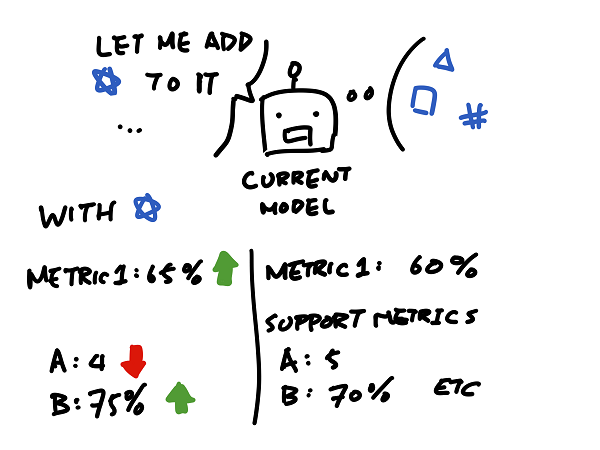 LET ME ADD
TO IT
...
CURRENT
MODEL
WITH
METRIC1: 65%
A: 4
B: 75%
METRIC1: 60%
SUPPORT METRICS
A: 5
B: 70% ETC